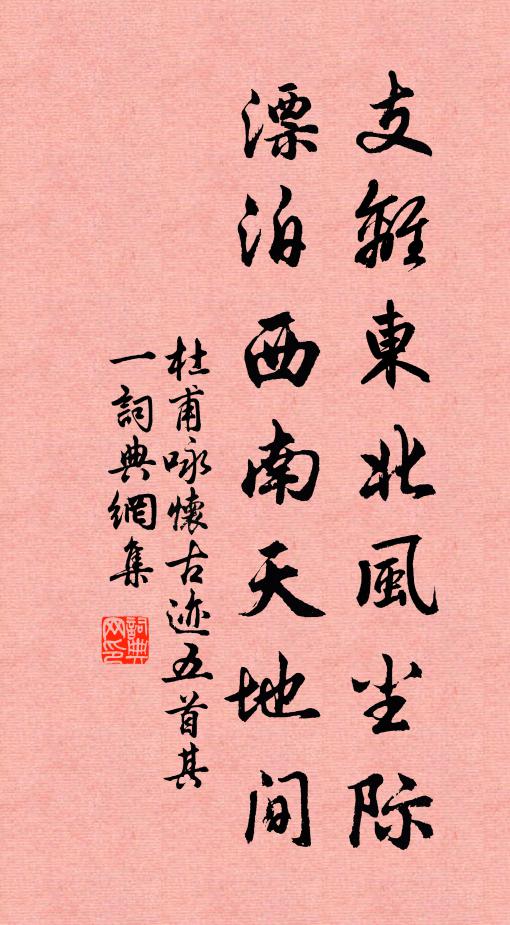 支離東北風尘际
漂泊西南天地间
杜甫咏懷古迹五首其
一詞典網集
詞典
网印